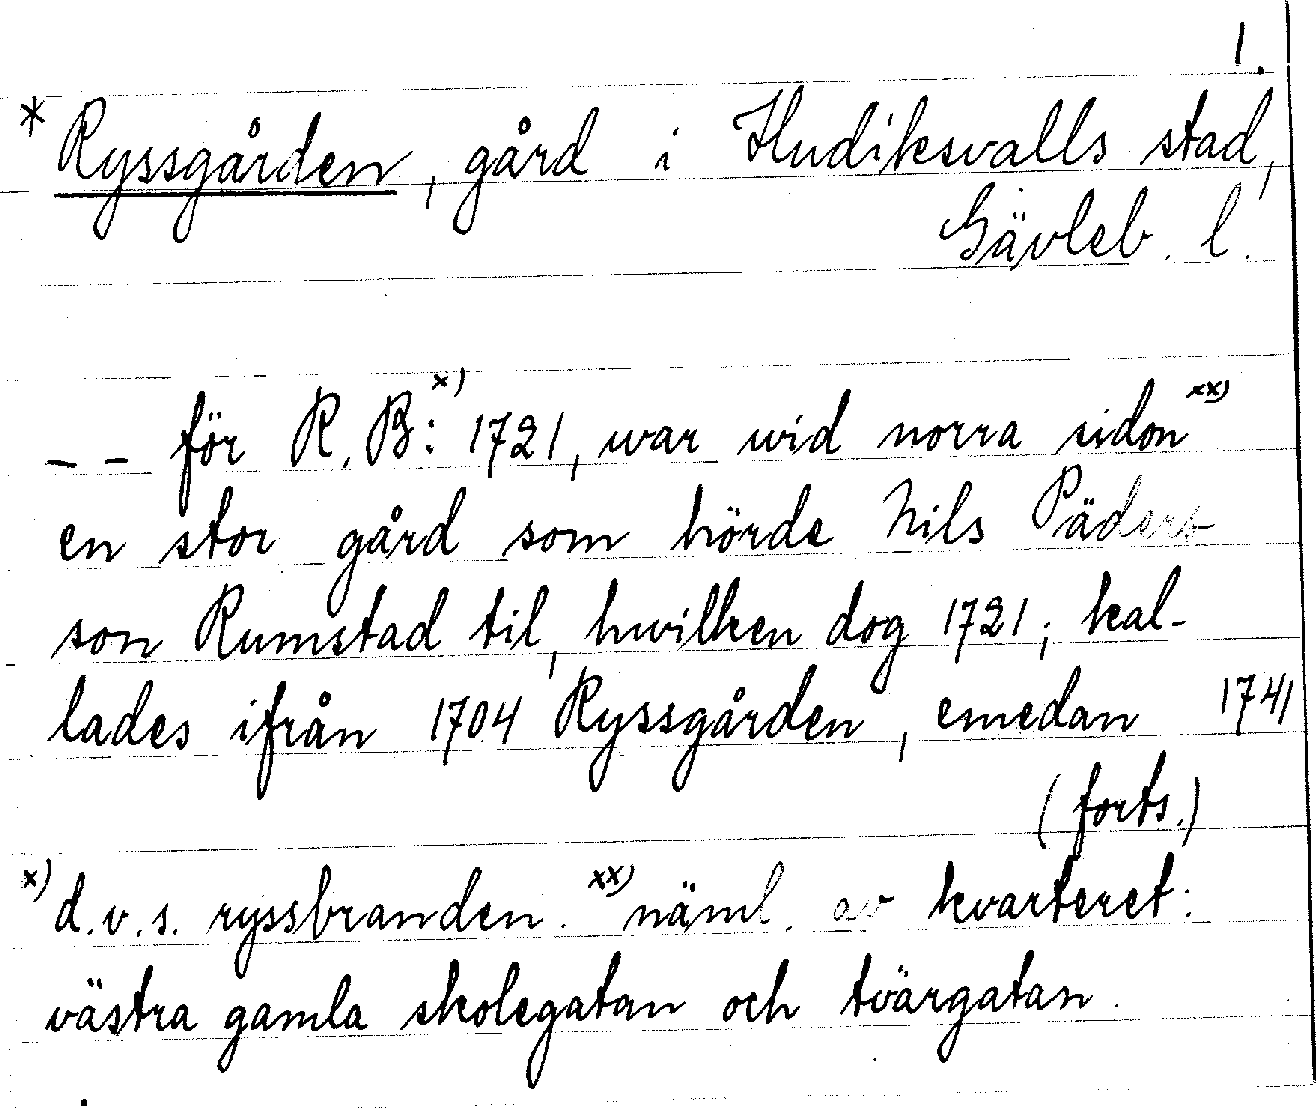 1.
* Ryssgården, gård i Hudiksvalls stad,
Gävleb. l.
– – för R. B:x) 1721, war wid norra sidon xx)
en stor gård som hörde Nils Päders
son Rumstad til, hwilken dog 1721; kal-
lades ifrån 1704 Ryssgården, emedan 1741
(forts.)
x) d.v.s. ryssbranden. xx) näml. av kvarteret:
västra gamla skolegatan och tvärgatan.